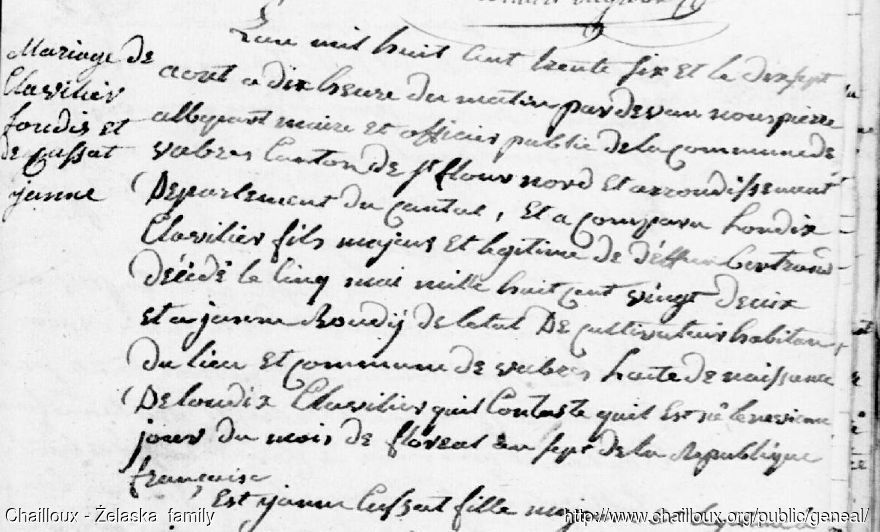 Mariage de
Clavilier
foudis et
de Cussat
janne
L'an mil huit cent trente six et le dix sept
aout a dix heure du matin par devan nous pierre
maire et officier public de la commune de
vabres Canton de st flour nord et arrondissement
Departement du cantal, et a comparu
Clavilier fils majeur et legitime de déffun bertrand
décédé le cinq mai mille huit cent vingt deux
et a janne Roudij de letat de cultivateur habitan
du lieu et commune de vabres lacte de naissance
De Clavilier qui Constate quil est né le
jour du mois de floreal an sept de la republique
francaise
Est janne Cussat fille
Chailloux - Żelaska family
http://www.chailloux.org/public/geneal/